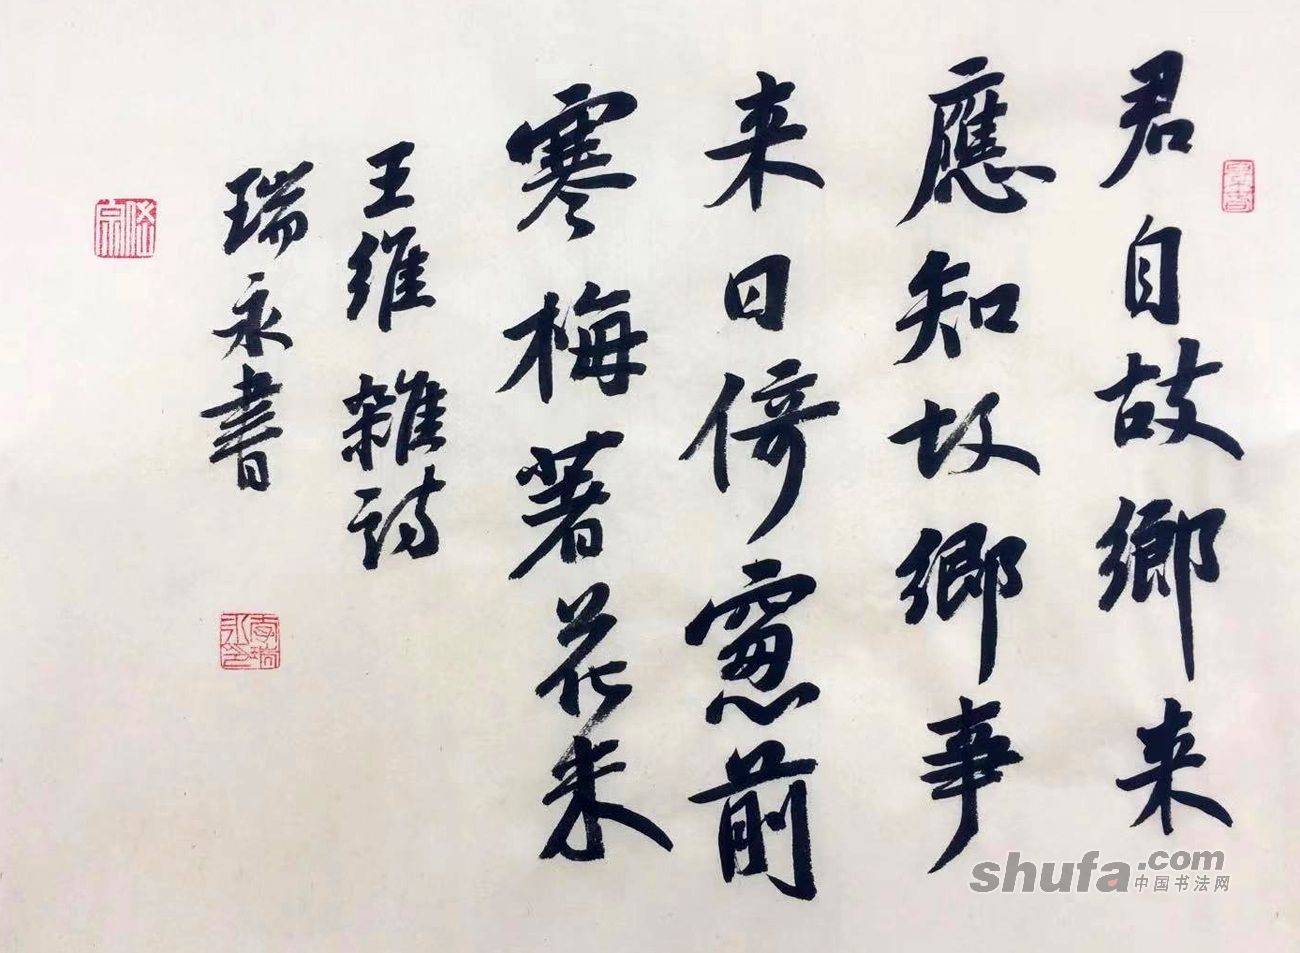 君自故鄉来
應知故鄉事
来日倚窻前
寒梅著花未
王維雜诗
瑞永書
李瑞永印
shufa.com
中国书法网